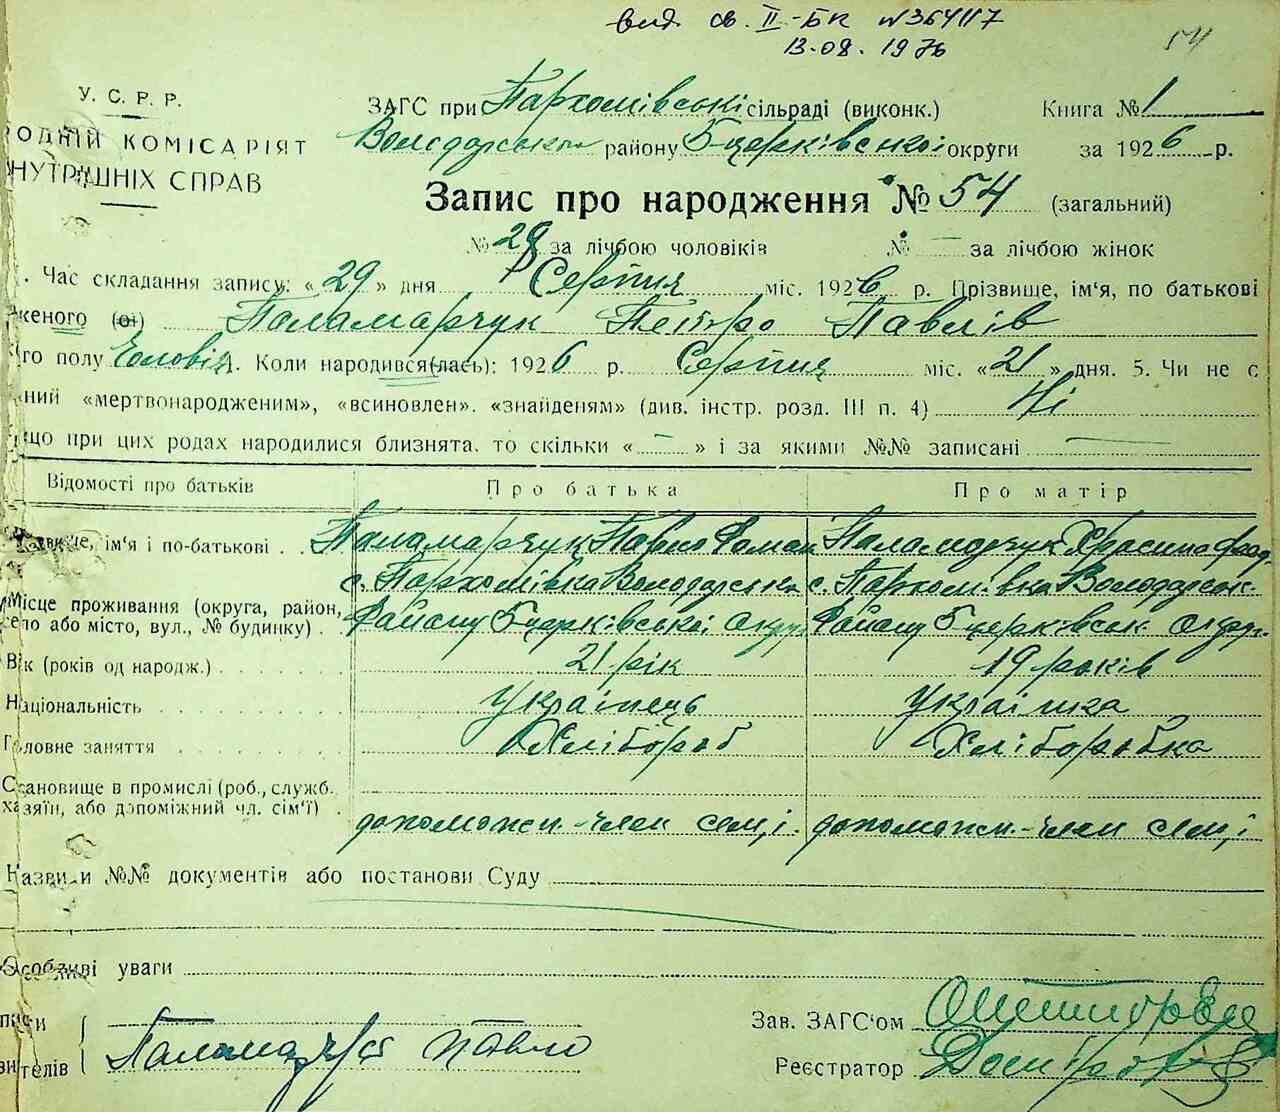 вид. св. II-БК №364117
13.08.1976
54
У.С.Р.Р.
РОДНІЙ КОМІСАРІЯТ
НУТРІШНІХ СПРАВ
ЗАГС при Пархомівські сільраді (виконк.) Книга № 1
Володарськом району Б-церківської округи за 1926 р.
Запис про народження № 54 (загальний)
№ 29 за лічбою чоловіків № — за лічбою жінок
. Час складання запису: «29» дня Серпня міс. 1926 р. Прізвище, ім'я, по батькові
женого (ої) Паламарчук Петро Павлів
го полу Чоловіч. Коли народився(лась): 1926 р. Серпня міс. «21» дня. 5. Чи не є
ний «мертвонародженим», «всиновлен». «знайденям» (див. інстр. розд. III п. 4) Ні
що при цих родах народилися близнята. то скільки « — » і за якими №№ записані —
Відомості про батьків Про батька Про матір
звище, ім'я і по-батькові . . Паламарчук Павло Роман Паламарчук
с. Пархомівка Володарська с. Пархомівка Володарськ.
Місце проживання (округа, район,
село або місто, вул., № будинку) . Району Бцерківської округ Району Бцерківськ округ.
Вік (років од народж.) 21 рік 19 років
Національність Українець Українка
Головне заняття Хлібороб Хліборобка
Становище в промислі (роб., служб.
хазяїн, або допоміжний чл. сім'ї) . допоможн.-член семʼі. допоможн.-член семʼі
Назви й №№ документів або постанови Суду
Особливі уваги
писи
вителів Паламарчук Павло
Зав. ЗАГС'ом
Реєстратор